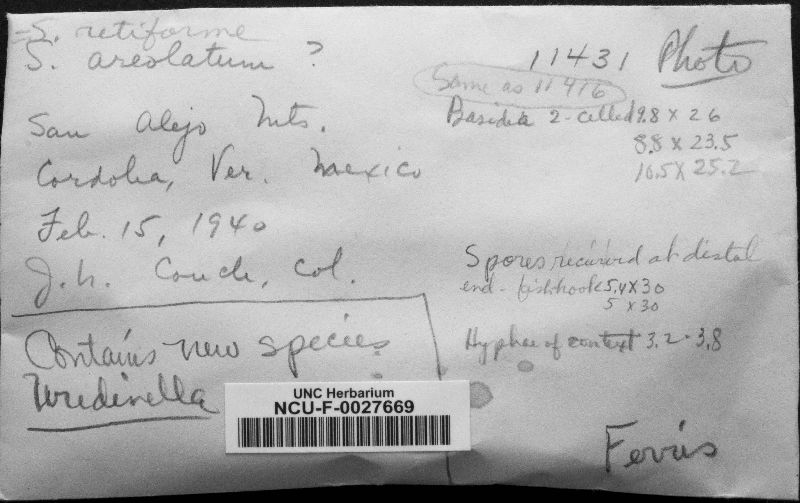 =S. retiforme
S. areolatum ?
11431 Photo
Same as 11416
San Alejo Mts.
Cordoba, Ver. Mexico
Feb. 15, 1940
J.N. Couch, Col.
Basidia 2-celled 9.8 x 26
8.8 x 23.5
10.5 x 25.2
Spores recurved at distal
end - fishhook 5.4 x 30
5 x 30
Hyphae of context 3.2 - 3.8
Contains new species
Uredinella
UNC Herbarium
NCU-F-0027669
Ferris